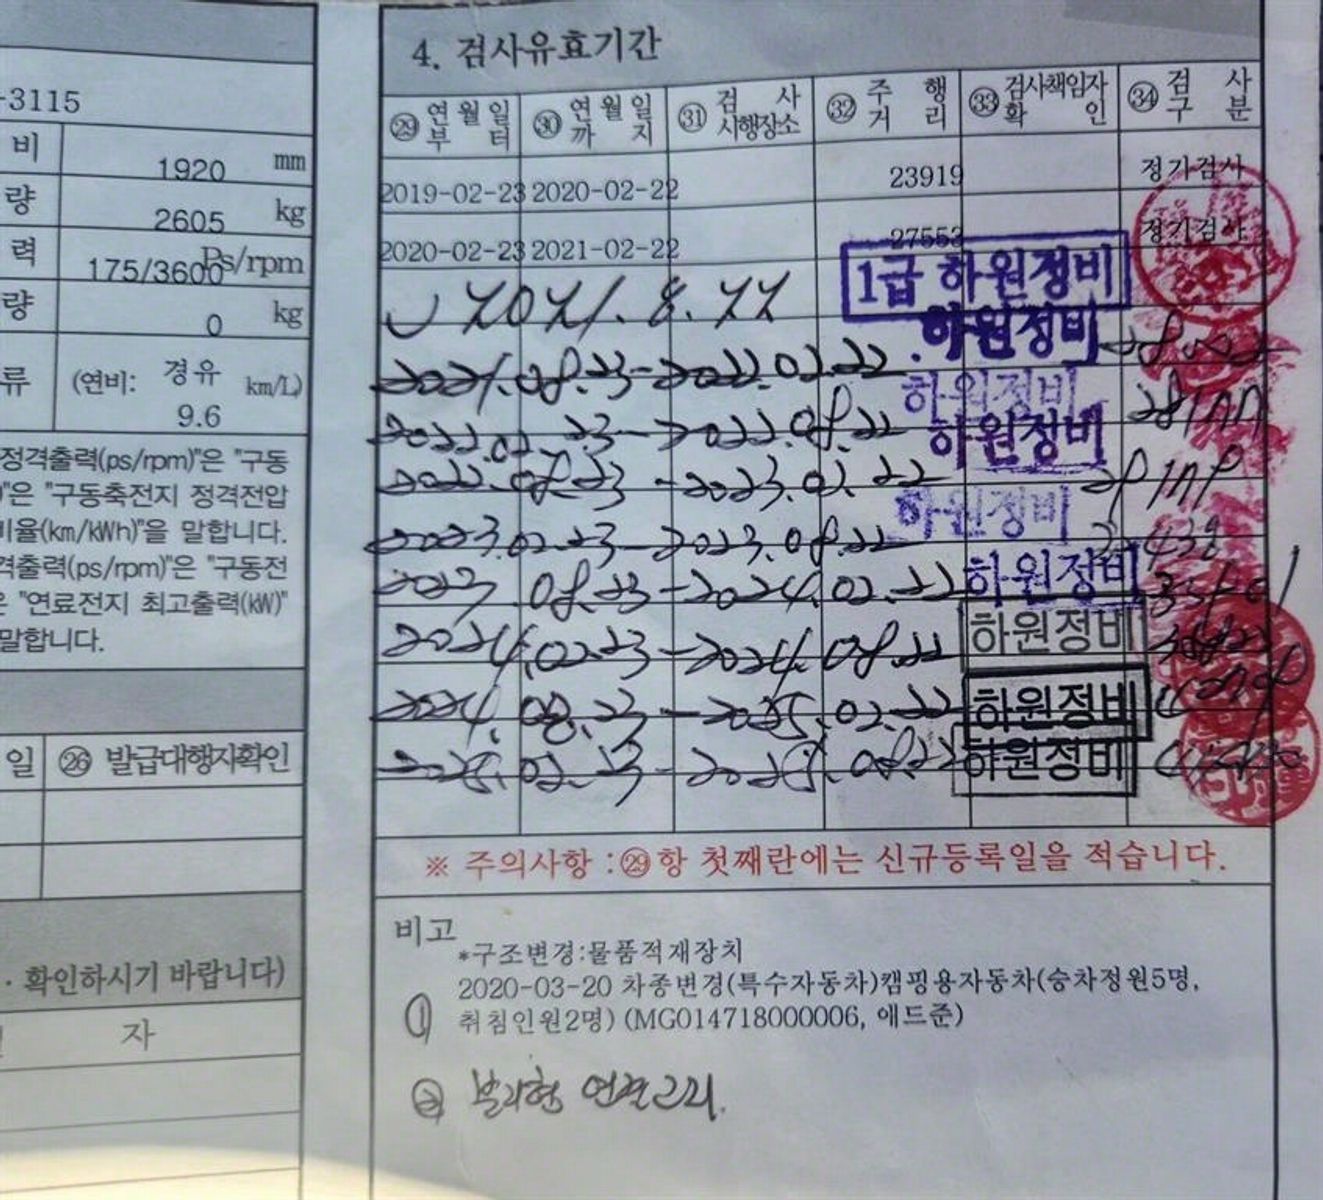 -3115
비 1920 mm
량 2605 kg
력 175/3600 Ps/rpm
량 0 kg
류 (연비: 경유 km/L)
9.6
정격출력(ps/rpm)"은 "구동
"은 "구동축전지 정격전압
비율(km/kWh)"을 말합니다.
격출력(ps/rpm)"은 "구동전
은 "연료전지 최고출력(kW)"
말합니다.
일 ㉖ 발급대행자확인
· 확인하시기 바랍니다)
자
4. 검사유효기간
㉙ 연월일부터 ㉚ 연월일까지 ㉛ 검사시행장소 ㉜ 주행거리 ㉝ 검사책임자확인 ㉞ 검사구분
2019-02-23 2020-02-22 23919 정기검사
2020-02-23 2021-02-22 27553 정기검사
1급 하원정비
2021.8.22 하원정비
2021.08.23-2022.02.22 하원정비
2022.02.23-2022.08.22 하원정비
2022.08.23-2023.02.22 하원정비
2023.02.23-2023.08.22 하원정비
2023.08.23-2024.02.22 하원정비
2024.02.23-2024.08.22 하원정비
2024.08.23-2025.02.22 하원정비
2025.02.23-2025.08.22
※ 주의사항 :㉙항 첫째란에는 신규등록일을 적습니다.
비고
*구조변경:물품적재장치
① 2020-03-20 차종변경(특수자동차)캠핑용자동차(승차정원5명,
취침인원2명) (MG014718000006, 애드준)
② 분리형 연결고리.